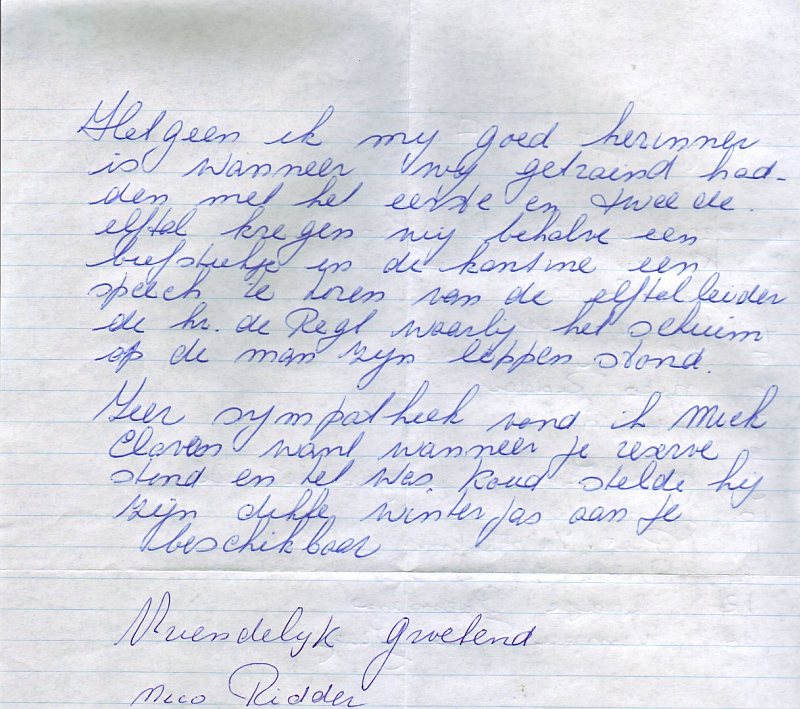 Hetgeen ik my goed herinner
is wanneer wy getraind had-
den met het eerste en tweede.
elftal kregen wij behalve een
biefstukje in de kantine een
speech te horen van de elftalleider
de hr. de Regt waarbij het schuim
op de man zyn lippen stond.
Zeer sympathiek vond ik
want wanneer je reserve
stond en het was koud stelde hij
zijn dikke winterjas aan je
beschikbaar
Vriendelyk groetend
Nico Ridder